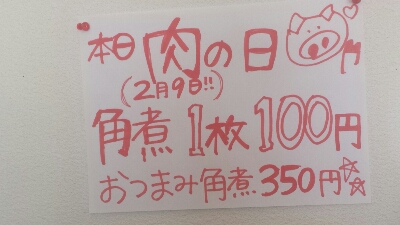 本日 肉の日
(2月9日!!)
角煮 1枚 100円
おつまみ角煮 350円